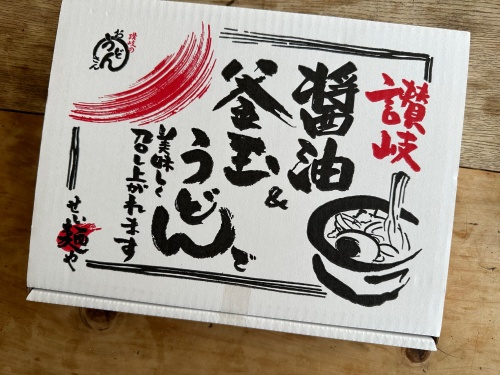 讃岐
醤油&
釜玉
うどんで
美味しく
召し上がれます
せい麺や
讃岐の
おどん
うどん
さん